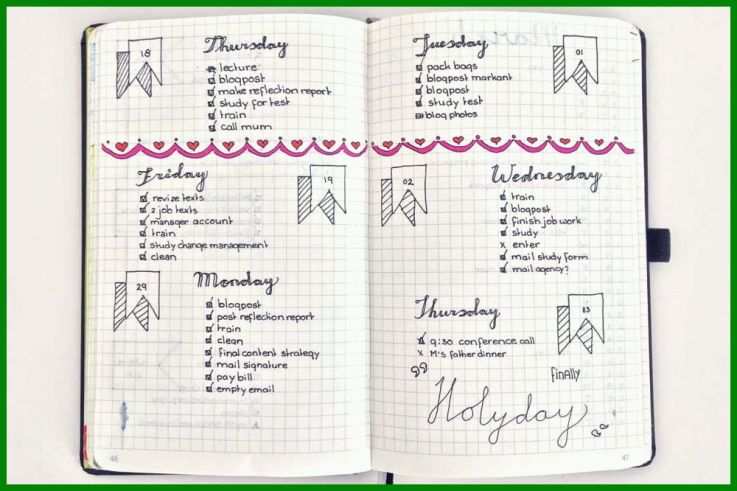 18
Thursday
lecture
blogpost
make reflection report
study for test
train
call mum
Friday
19
revize texts
2 job texts
manager account
train
study change management
clean
29
Monday
blogpost
post reflection report
train
clean
final content strategy
mail signature
pay bill
empty email
46
Tuesday
01
pack bags
blogpost markant
blogpost
study test
blog photos
02
Wednesday
train
blogpost
finish job work
study
x enter
mail study form
mail agency?
Thursday
9:30 conference call
x M's father dinner
finally
"Holyday"
47